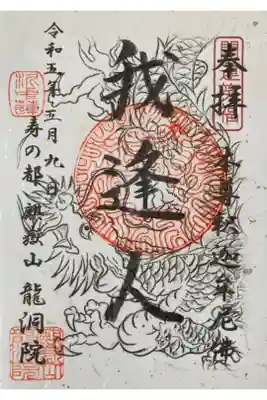 奉拝
本尊釈迦牟尼佛
我逢人
令和五年五月九日
寿の都 興嶽山 龍洞院